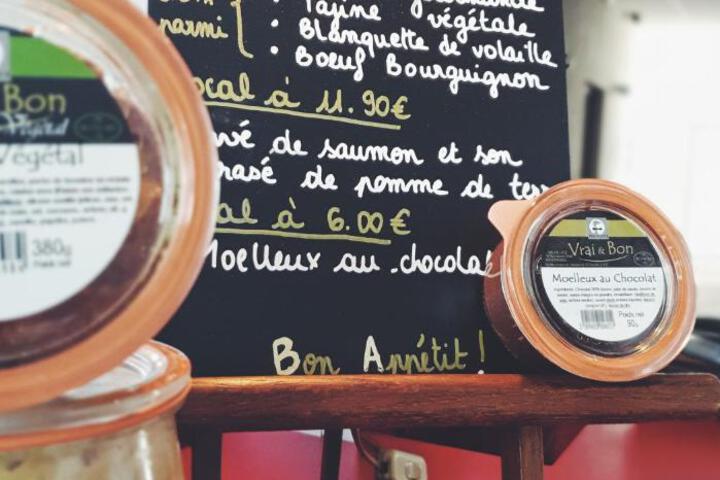 parmi
: Tajine
végétale
: Blanquette de volaille
: Boeuf Bourguignon
ocal à 11.90€
vé de saumon et son
rasé de pomme de ter
al à 6.00€
Moelleux au chocolat
Bon Appétit !
Bon
Végétal
Végétal
380g
Poids net
Vrai & Bon
Moelleux au Chocolat
Poids net
90g